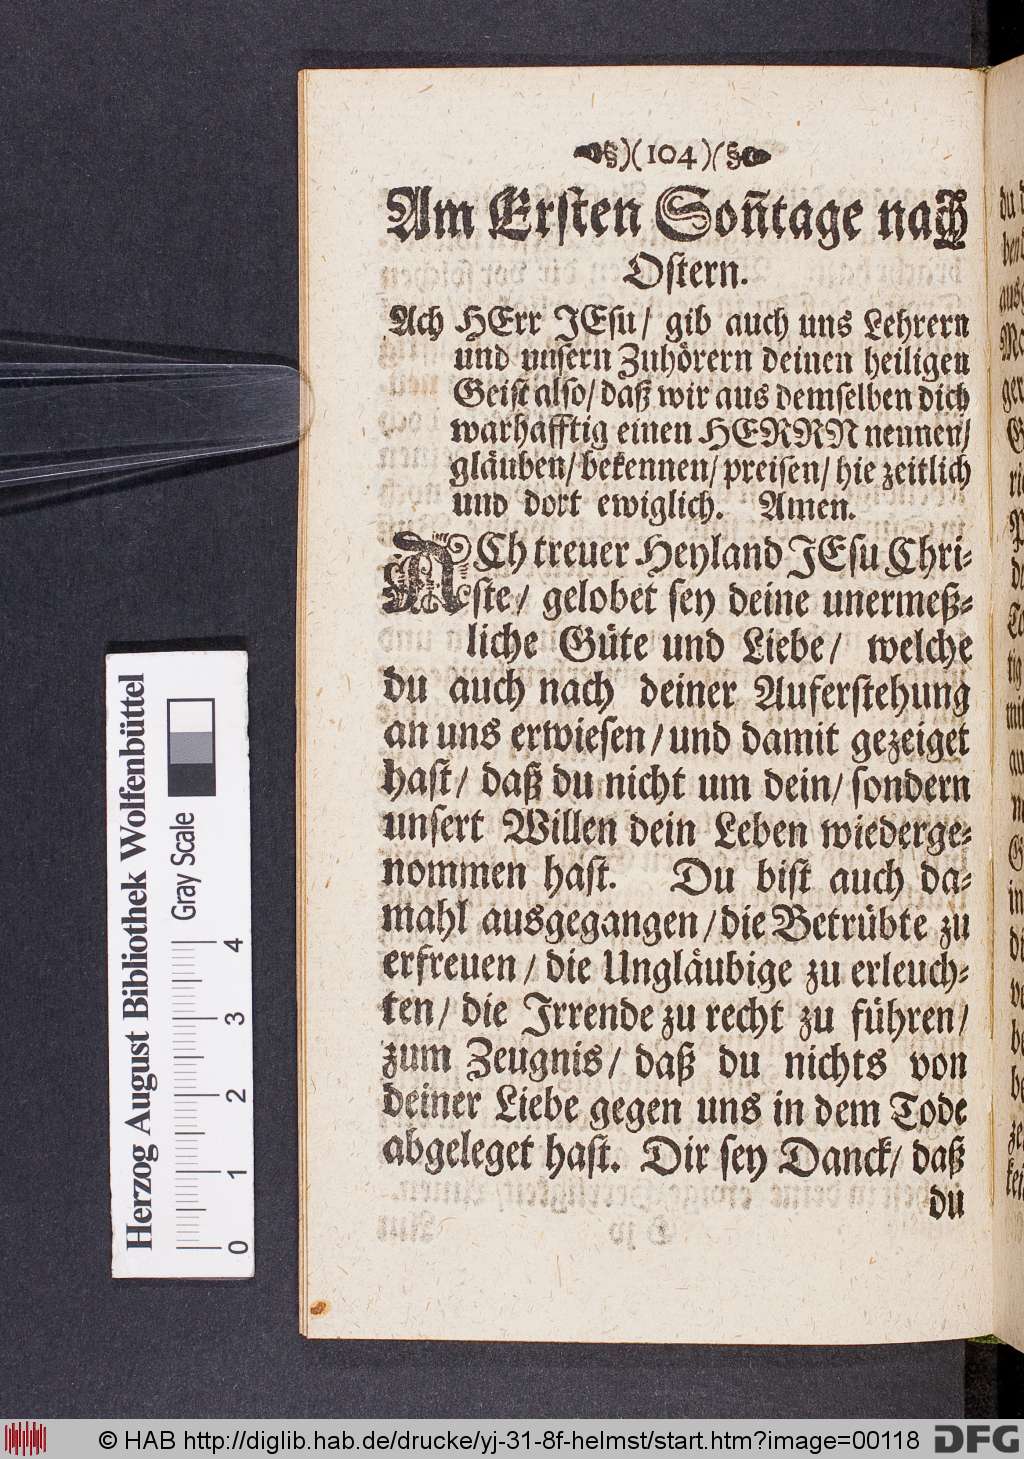 )(104)(
Am Ersten Soñtage nach
Ostern.
Ach HErr JEsu/ gib auch uns Lehrern
und unsern Zuhörern deinen heiligen
Geist also/ daß wir aus demselben dich
warhafftig einen HERRN nennen/
gläuben/ bekennen/ preisen/ hie zeitlich
und dort ewiglich. Amen.
ACh treuer Heyland JEsu Chri-
ste/ gelobet sey deine unermeß-
liche Güte und Liebe/ welche
du auch nach deiner Auferstehung
an uns erwiesen/ und damit gezeiget
hast/ daß du nicht um dein/ sondern
unsert Willen dein Leben wiederge-
nommen hast. Du bist auch da-
mahl ausgegangen/ die Betrübte zu
erfreuen/ die Ungläubige zu erleuch-
ten/ die Irrende zu recht zu führen/
zum Zeugnis/ daß du nichts von
deiner Liebe gegen uns in dem Tode
abgeleget hast. Dir sey Danck/ daß
du
Herzog August Bibliothek Wolfenbüttel
Gray Scale
0 1 2 3 4
© HAB http://diglib.hab.de/drucke/yj-31-8f-helmst/start.htm?image=00118
DFG